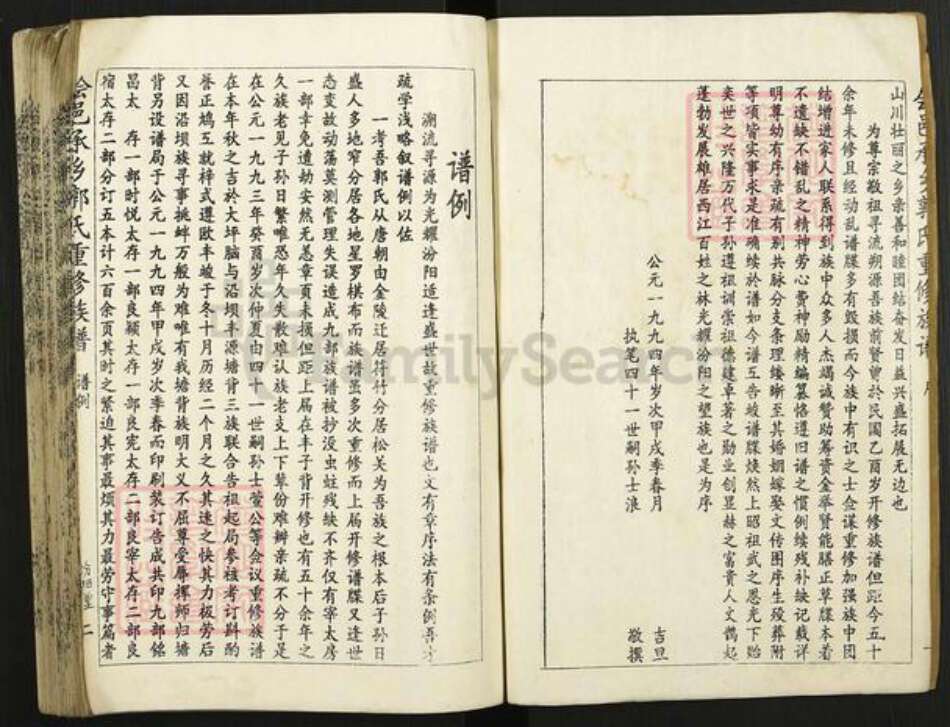 山川壮丽之乡亲善和睦团结奋发日益兴盛拓展无边也
为尊宗敬祖寻流朔源吾族前贤曾於民国乙酉岁开修族谱但距今五十
余年未修且经动乱谱牒多有毁损而今族中有识之士佥谋重修加强族中团
结增进家人联系得到族中众多人杰竭诚赞助筹资金举贤能膳正草牒本着
不遗缺不错乱之精神劳心费神励精编纂恪遵旧谱之惯例续残补缺记载详
明尊幼有序亲疏有别共脉分支条理缕晰至其婚姻嫁娶文传图序生殁葬附
等项皆实事求是准确续於谱如今谱互告竣谱牒焕然上昭祖武之恩光下贻
奕世之兴隆万代子孙遵祖训崇祖德建卓著之勋业创显赫之富贵人文鹊起
蓬勃发展雄居西江百姓之林光耀汾阳之望族也是为序
公元一九九四年岁次甲戌季春月 吉旦
执笔四十一世嗣孙士浪 敬撰
谱例
溯流寻源为光耀汾阳适逢盛世故重修族谱也文有章序法有条例吾才
疏学浅略叙谱例以佐
一考吾郭氏从唐朝由金陵迁居符竹分居松关为吾族之根本后子孙日
盛人多地窄分居各地星罗棋布而族谱虽多次重修而上届开修谱牒又逢世
态变故动荡莫测管理失误造成九部族谱被抄没虫蛀残缺不齐仅有宰太房
一部幸免遭劫安然无恙章页未损但距上届在丰子背开修也有五十余年之
久族老见子孙日繁唯恐年久失散难认族老支上下辈份难辨亲疏不分于是
在公元一九九三年癸酉岁次仲夏由四十一世嗣孙士萱公等会议重修族谱
在本年秋之吉於大坪脑与沿坝丰源塘背三族联合告祖起局参核考订斟酌
誉正鸠工就梓式遵欧丰竣于冬十月历经二个月之久其速之快其力极劳后
又因沿坝族寻事挑衅万般为难唯有我塘背族明大义不屈尊受辱挥师归塘
背另设谱局于公元一九九四年甲戌岁次季春而印刷装订告成共印九部铭
昌太 存一部时悦太存一部良颖太存一部良宪太存二部良宰太存二部良
宿太存二部分订五本计六百余页其时之紧迫其事最烦其力最劳守事篇者
邑承乡郭氏重修族谱 谱例
二